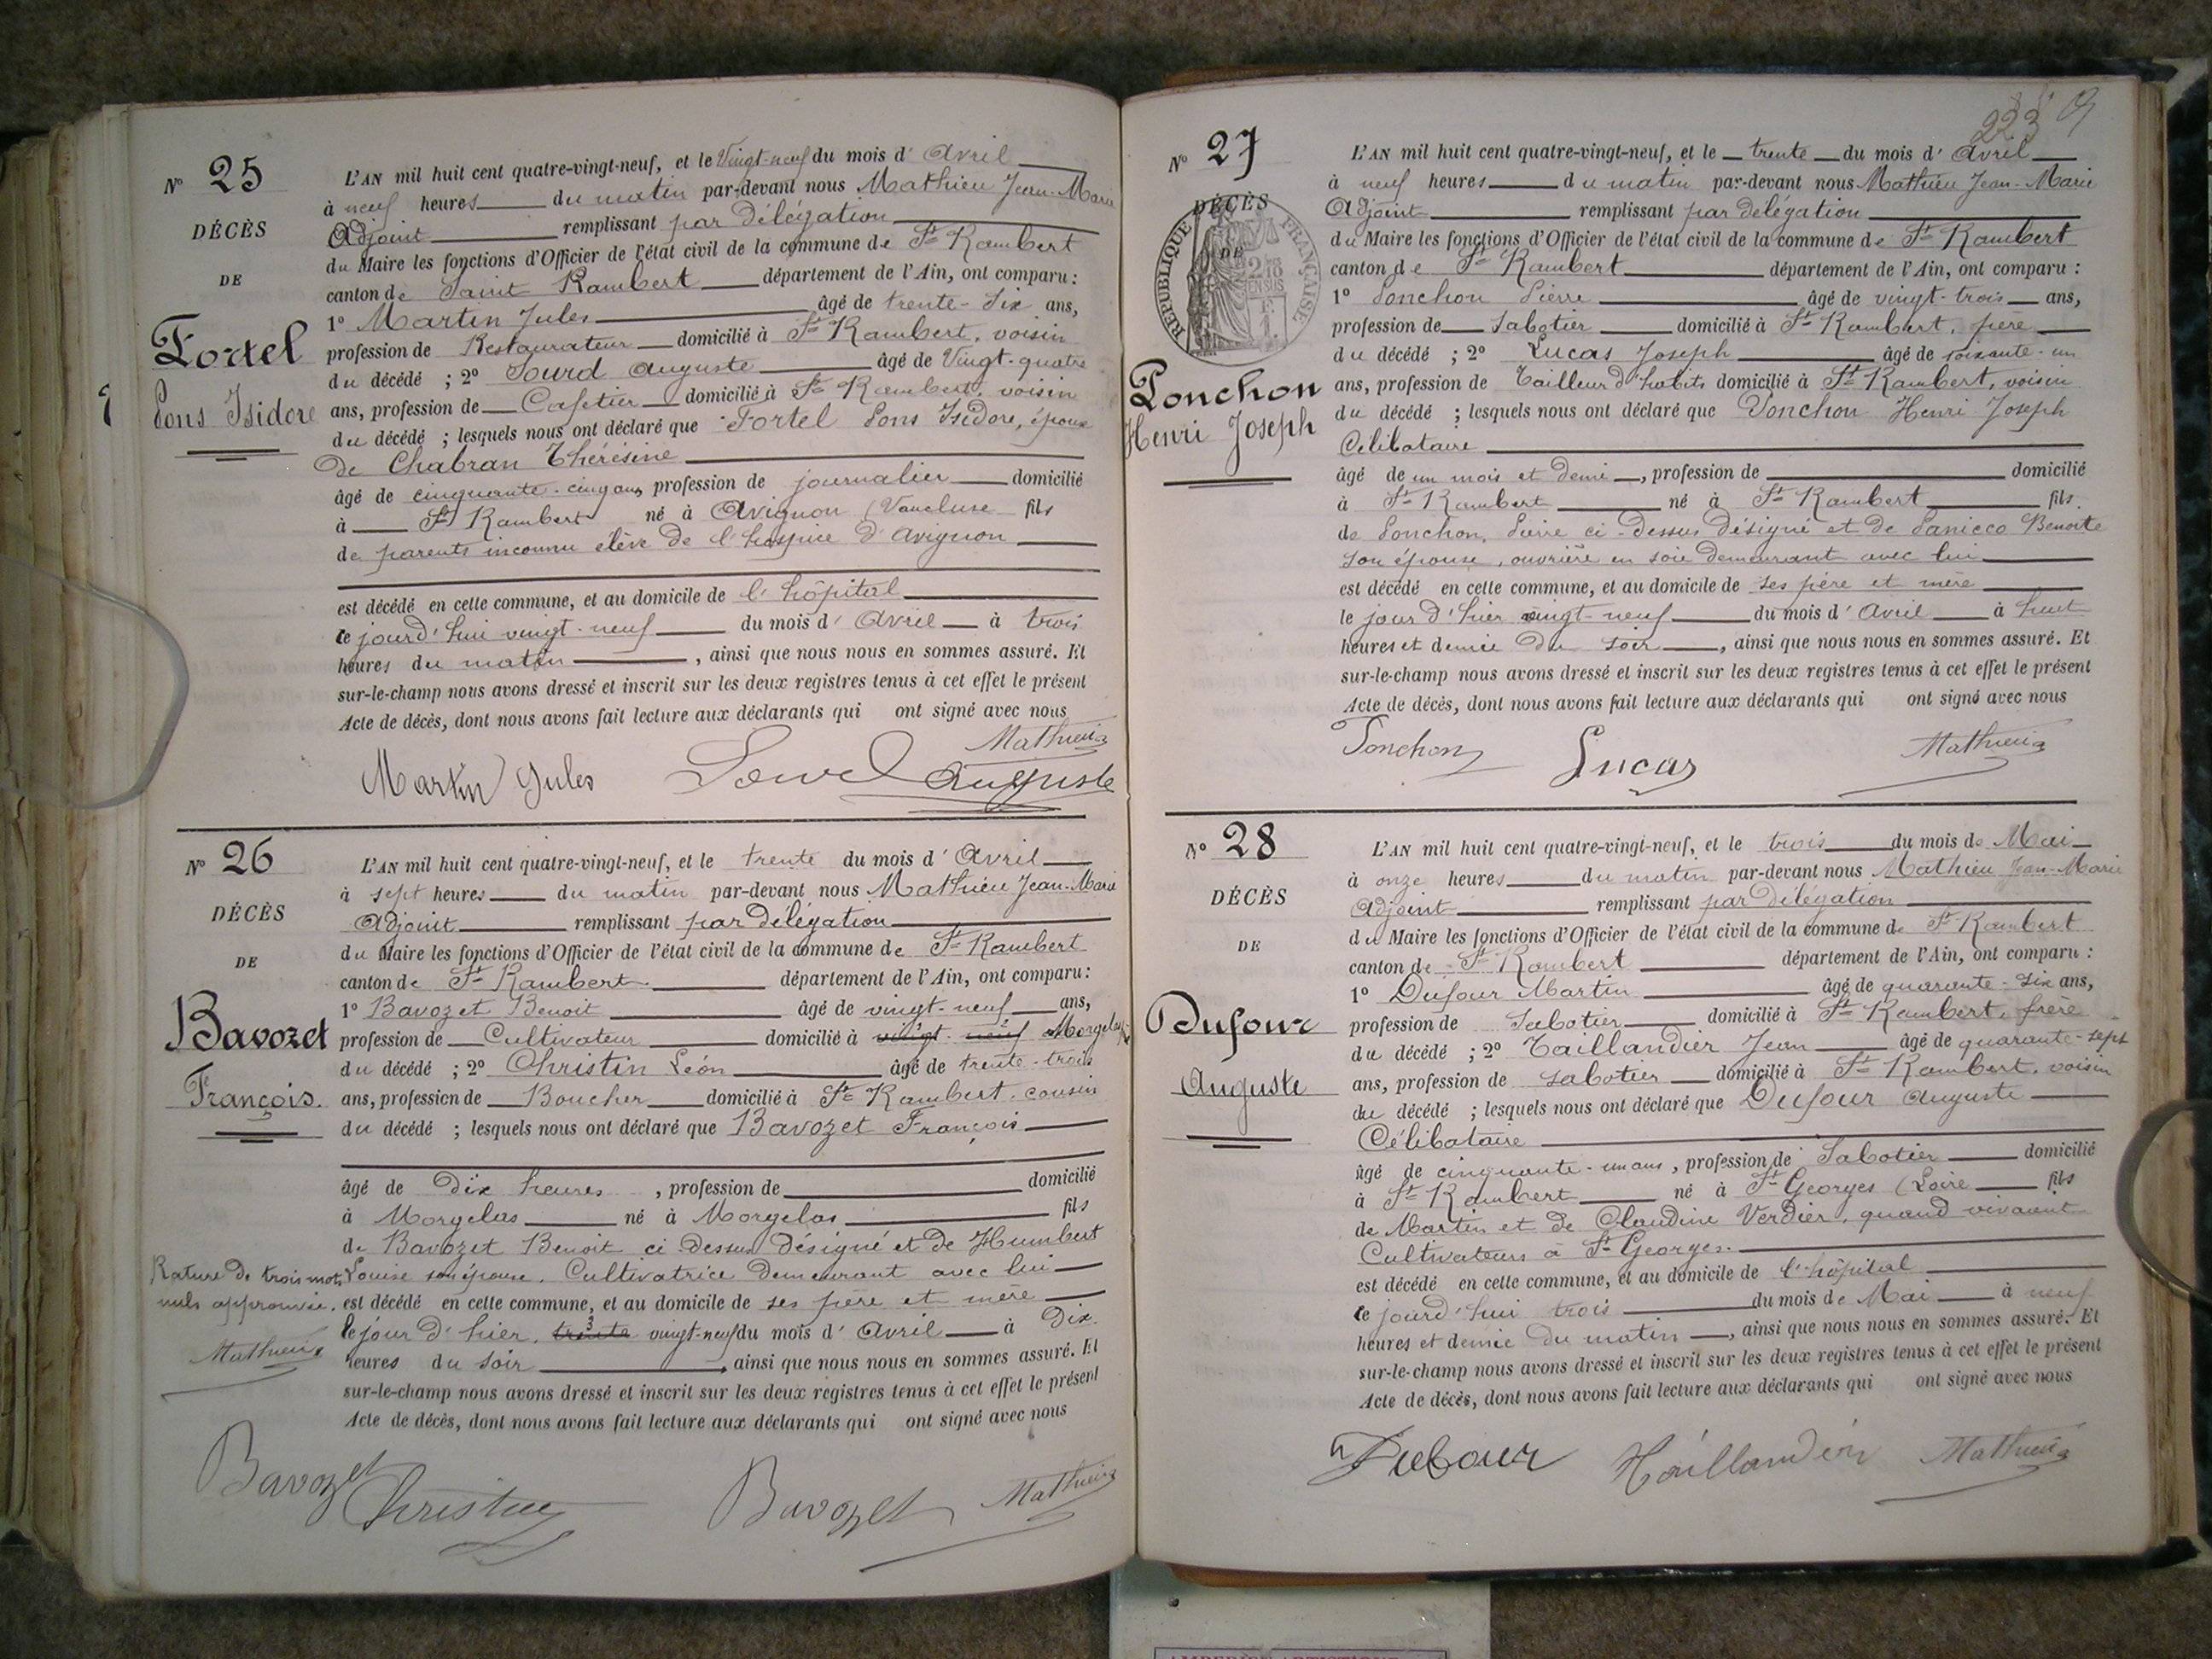 N° 25
DÉCÈS
DE
Fortel
Pons Isidore
L'AN mil huit cent quatre-vingt-neuf, et le Vingt-neuf du mois d' Avril
à neuf heures du matin par-devant nous Mathieu Jean-Marie
Adjoint remplissant par délégation
du Maire les fonctions d'Officier de l'état civil de la commune de St Rambert
canton de Saint Rambert département de l'Ain, ont comparu :
1° Martin Jules âgé de trente-six ans,
profession de Restaurateur domicilié à St Rambert, voisin
du décédé ; 2° Sourd Auguste âgé de Vingt-quatre
ans, profession de Cafetier domicilié à St Rambert, voisin
du décédé ; lesquels nous ont déclaré que Fortel Pons Isidore, époux
de Chabran Thérésine
âgé de cinquante-cinq ans, profession de journalier domicilié
à St Rambert né à Avignon (Vaucluse fils
de parents inconnu élève de l'hospice d'Avignon
est décédé en cette commune, et au domicile de l'hôpital
ce jourd'hui vingt-neuf du mois d' Avril à trois
heures du matin, ainsi que nous nous en sommes assuré. Et
sur-le-champ nous avons dressé et inscrit sur les deux registres tenus à cet effet le présent
Acte de décès, dont nous avons fait lecture aux déclarants qui ont signé avec nous
Mathieu
Martin Jules Auguste
N° 26
DÉCÈS
DE
Bavozet
François.
L'AN mil huit cent quatre-vingt-neuf, et le trente du mois d' Avril
à sept heures du matin par-devant nous Mathieu Jean-Marie
Adjoint remplissant par délégation
du Maire les fonctions d'Officier de l'état civil de la commune de St Rambert
canton de St Rambert département de l'Ain, ont comparu :
1° Bavozet Benoit âgé de vingt-neuf ans,
profession de Cultivateur domicilié à vingt-neuf Morgelas
du décédé ; 2° Christin Léon âgé de trente-trois
ans, profession de Boucher domicilié à St Rambert, cousin
du décédé ; lesquels nous ont déclaré que Bavozet François
âgé de Dix heures, profession de domicilié
à Morgelas né à Morgelas fils
de Bavozet Benoit ci-dessus désigné et de Humbert
Louise son épouse, Cultivatrice demeurant avec lui
est décédé en cette commune, et au domicile de ses père et mère
le jour d'hier, trente vingt-neuf du mois d' Avril à Dix
heures du soir, ainsi que nous nous en sommes assuré. Et
sur-le-champ nous avons dressé et inscrit sur les deux registres tenus à cet effet le présent
Acte de décès, dont nous avons fait lecture aux déclarants qui ont signé avec nous
Rature de trois mots
nuls approuvée.
Mathieu
Bavozet Christin Bavozet Mathieu
223
N° 27
DÉCÈS
DE
RÉPUBLIQUE FRANÇAISE
Ponchon
Henri Joseph
L'AN mil huit cent quatre-vingt-neuf, et le trente du mois d' Avril
à neuf heures du matin par-devant nous Mathieu Jean-Marie
Adjoint remplissant par délégation
du Maire les fonctions d'Officier de l'état civil de la commune de St Rambert
canton de St Rambert département de l'Ain, ont comparu :
1° Ponchon Pierre âgé de vingt-trois ans,
profession de Sabotier domicilié à St Rambert, père
du décédé ; 2° Lucas Joseph âgé de soixante-un
ans, profession de Tailleur d'habits domicilié à St Rambert, voisin
du décédé ; lesquels nous ont déclaré que Ponchon Henri Joseph
Célibataire
âgé de un mois et demi, profession de domicilié
à St Rambert né à St Rambert fils
de Ponchon, Pierre ci-dessus désigné et de Benoite
son épouse, ouvrière en soie demeurant avec lui
est décédé en cette commune, et au domicile de ses père et mère
le jour d'hier vingt-neuf du mois d' Avril à huit
heures et demie du soir, ainsi que nous nous en sommes assuré. Et
sur-le-champ nous avons dressé et inscrit sur les deux registres tenus à cet effet le présent
Acte de décès, dont nous avons fait lecture aux déclarants qui ont signé avec nous
Ponchon Lucas Mathieu
N° 28
DÉCÈS
DE
Dufour
Auguste
L'AN mil huit cent quatre-vingt-neuf, et le trois du mois de Mai
à onze heures du matin par-devant nous Mathieu Jean-Marie
Adjoint remplissant par délégation
du Maire les fonctions d'Officier de l'état civil de la commune de St Rambert
canton de St Rambert département de l'Ain, ont comparu :
1° Dufour Martin âgé de quarante-six ans,
profession de Sabotier domicilié à St Rambert, frère
du décédé ; 2° Taillandier Jean âgé de quarante-sept
ans, profession de sabotier domicilié à St Rambert, voisin
du décédé ; lesquels nous ont déclaré que Dufour Auguste
Célibataire
âgé de cinquante-un ans, profession de Sabotier domicilié
à St Rambert né à St Georges (Loire fils
de Martin et de Claudine Verdier, quand vivaient
Cultivateurs à St Georges.
est décédé en cette commune, et au domicile de l'hôpital
ce jourd'hui trois du mois de Mai à neuf
heures et demie du matin, ainsi que nous nous en sommes assuré. Et
sur-le-champ nous avons dressé et inscrit sur les deux registres tenus à cet effet le présent
Acte de décès, dont nous avons fait lecture aux déclarants qui ont signé avec nous
Mathieu